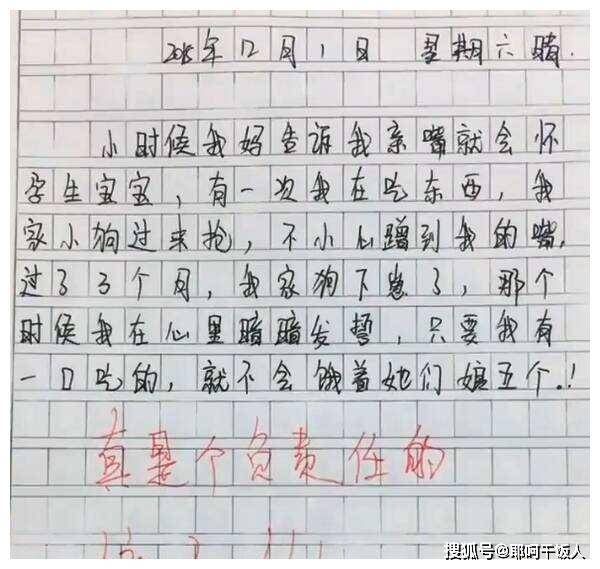 2018年12月1日 星期六 晴.
小时候我妈告诉我亲嘴就会怀
孕生宝宝，有一次我在吃东西，我
家小狗过来抢，不小心蹭到我的嘴.
过了3个月，我家狗下崽了，那个
时候我在心里暗暗发誓，只要我有
一口吃的，就不会饿着她们娘五个.!
真是个负责任的
搜狐号@耶呵干饭人